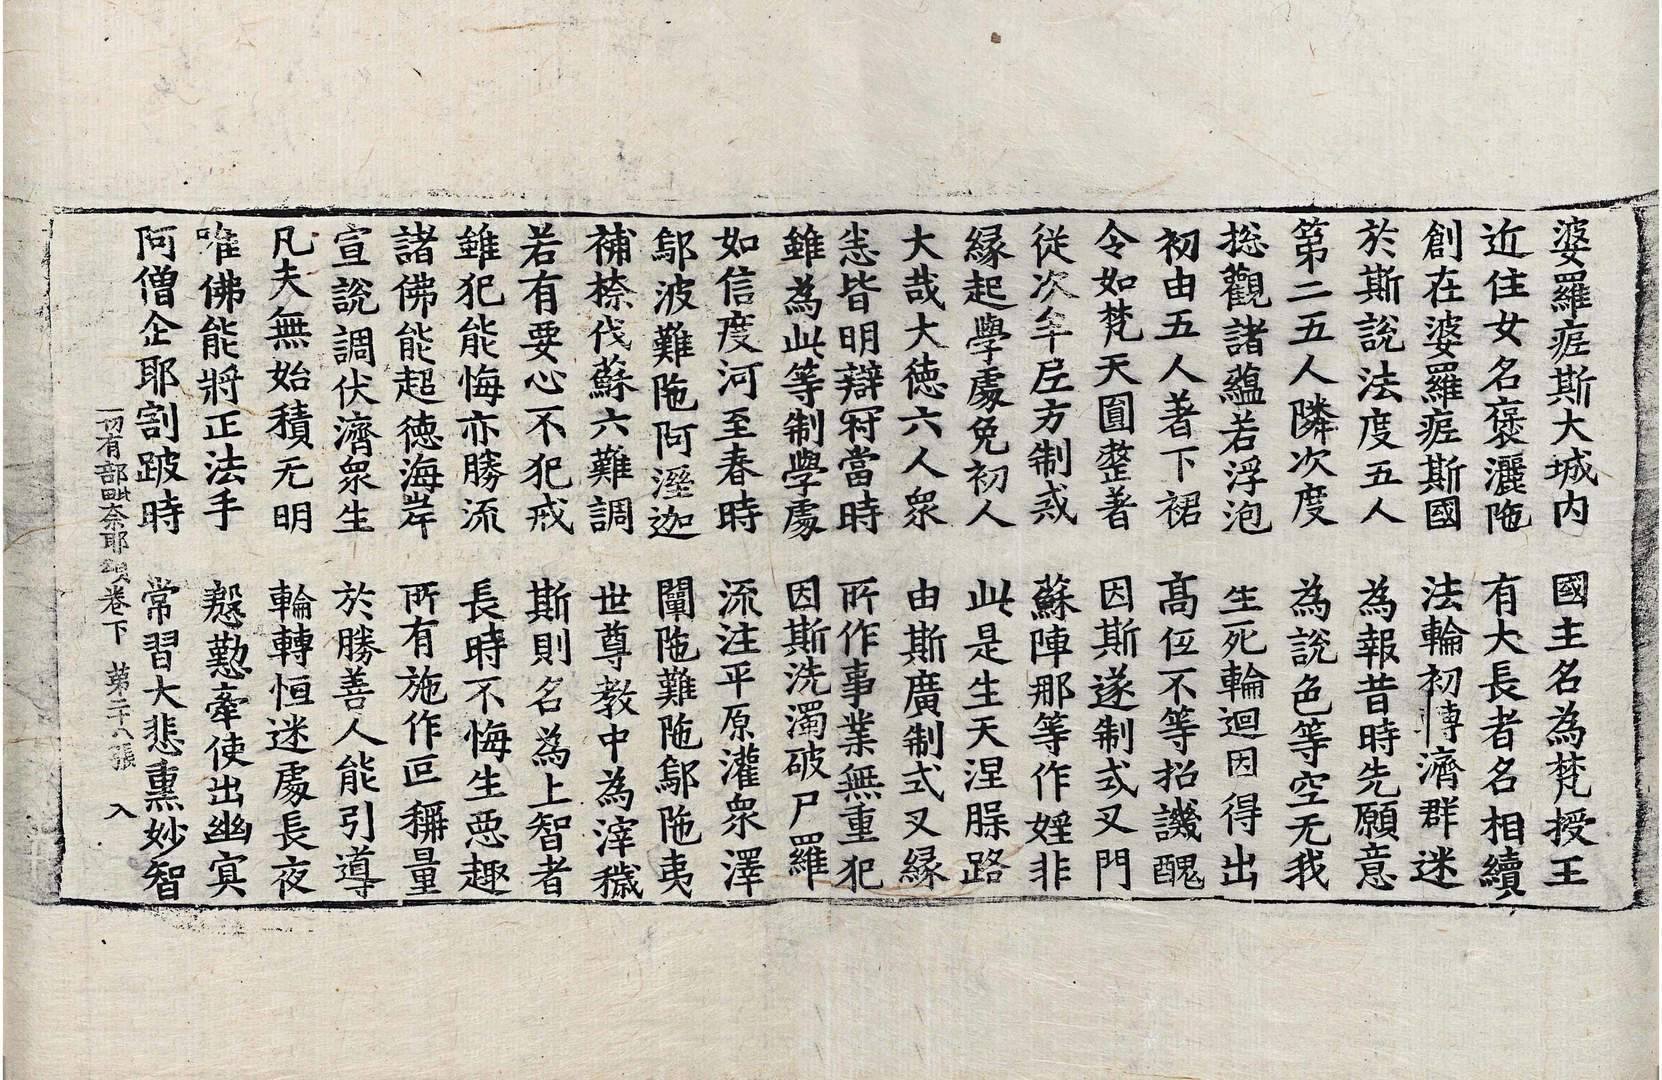 婆羅痆斯大城内　國主名為梵授王
近住女名褒灑陁　有大長者名相續
創在婆羅痆斯國　法輪初轉濟群迷
於斯說法度五人　為報昔時先願意
第二五人隣次度　為說色等空无我
捴觀諸蘊若浮泡　生死輪迴因得出
初由五人著下裙　高伍不等招譏醜
令如梵天圓整著　因斯遂制式叉門
從次牟尼方制戒　蘇陣那等作婬非
緣起學處免初人　此是生天涅脵路
大哉大德六人衆　由斯廣制式叉緣
恙皆明辯冠當時　所作事業無重犯
雖為此等制學處　因斯洗濁破尸羅
如信度河至春時　流注平原灌衆澤
鄔波難陁阿溼迦　闡陁難陁鄔陁夷
補捺伐蘇六難調　世尊教中為滓穢
若有要心不犯戒　斯則名為上智者
雖犯能悔亦勝流　長時不悔生惡趣
諸佛能超德海岸　所有施作叵稱量
宣說調伏濟衆生　於勝善人能引導
凡夫無始積无明　輪轉恒迷處長夜
唯佛能將正法手　慇懃牽使出幽冥
阿僧企耶割跛時　常習大悲熏妙智
一切有部毗奈耶頌卷下　第二十八張　入